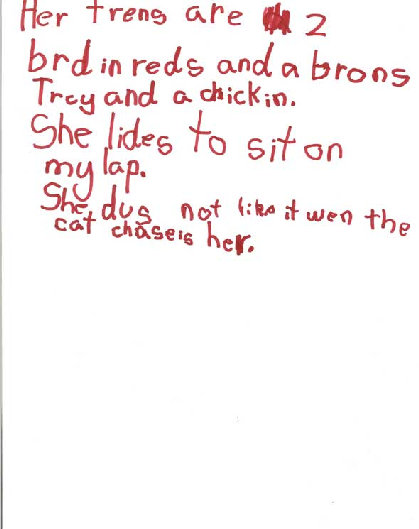 Her frens are 2
brd in reds and a brons
Trcy and a chickin.
She lides to sit on
my lap.
She dus not like it wen the
cat chaseis her.